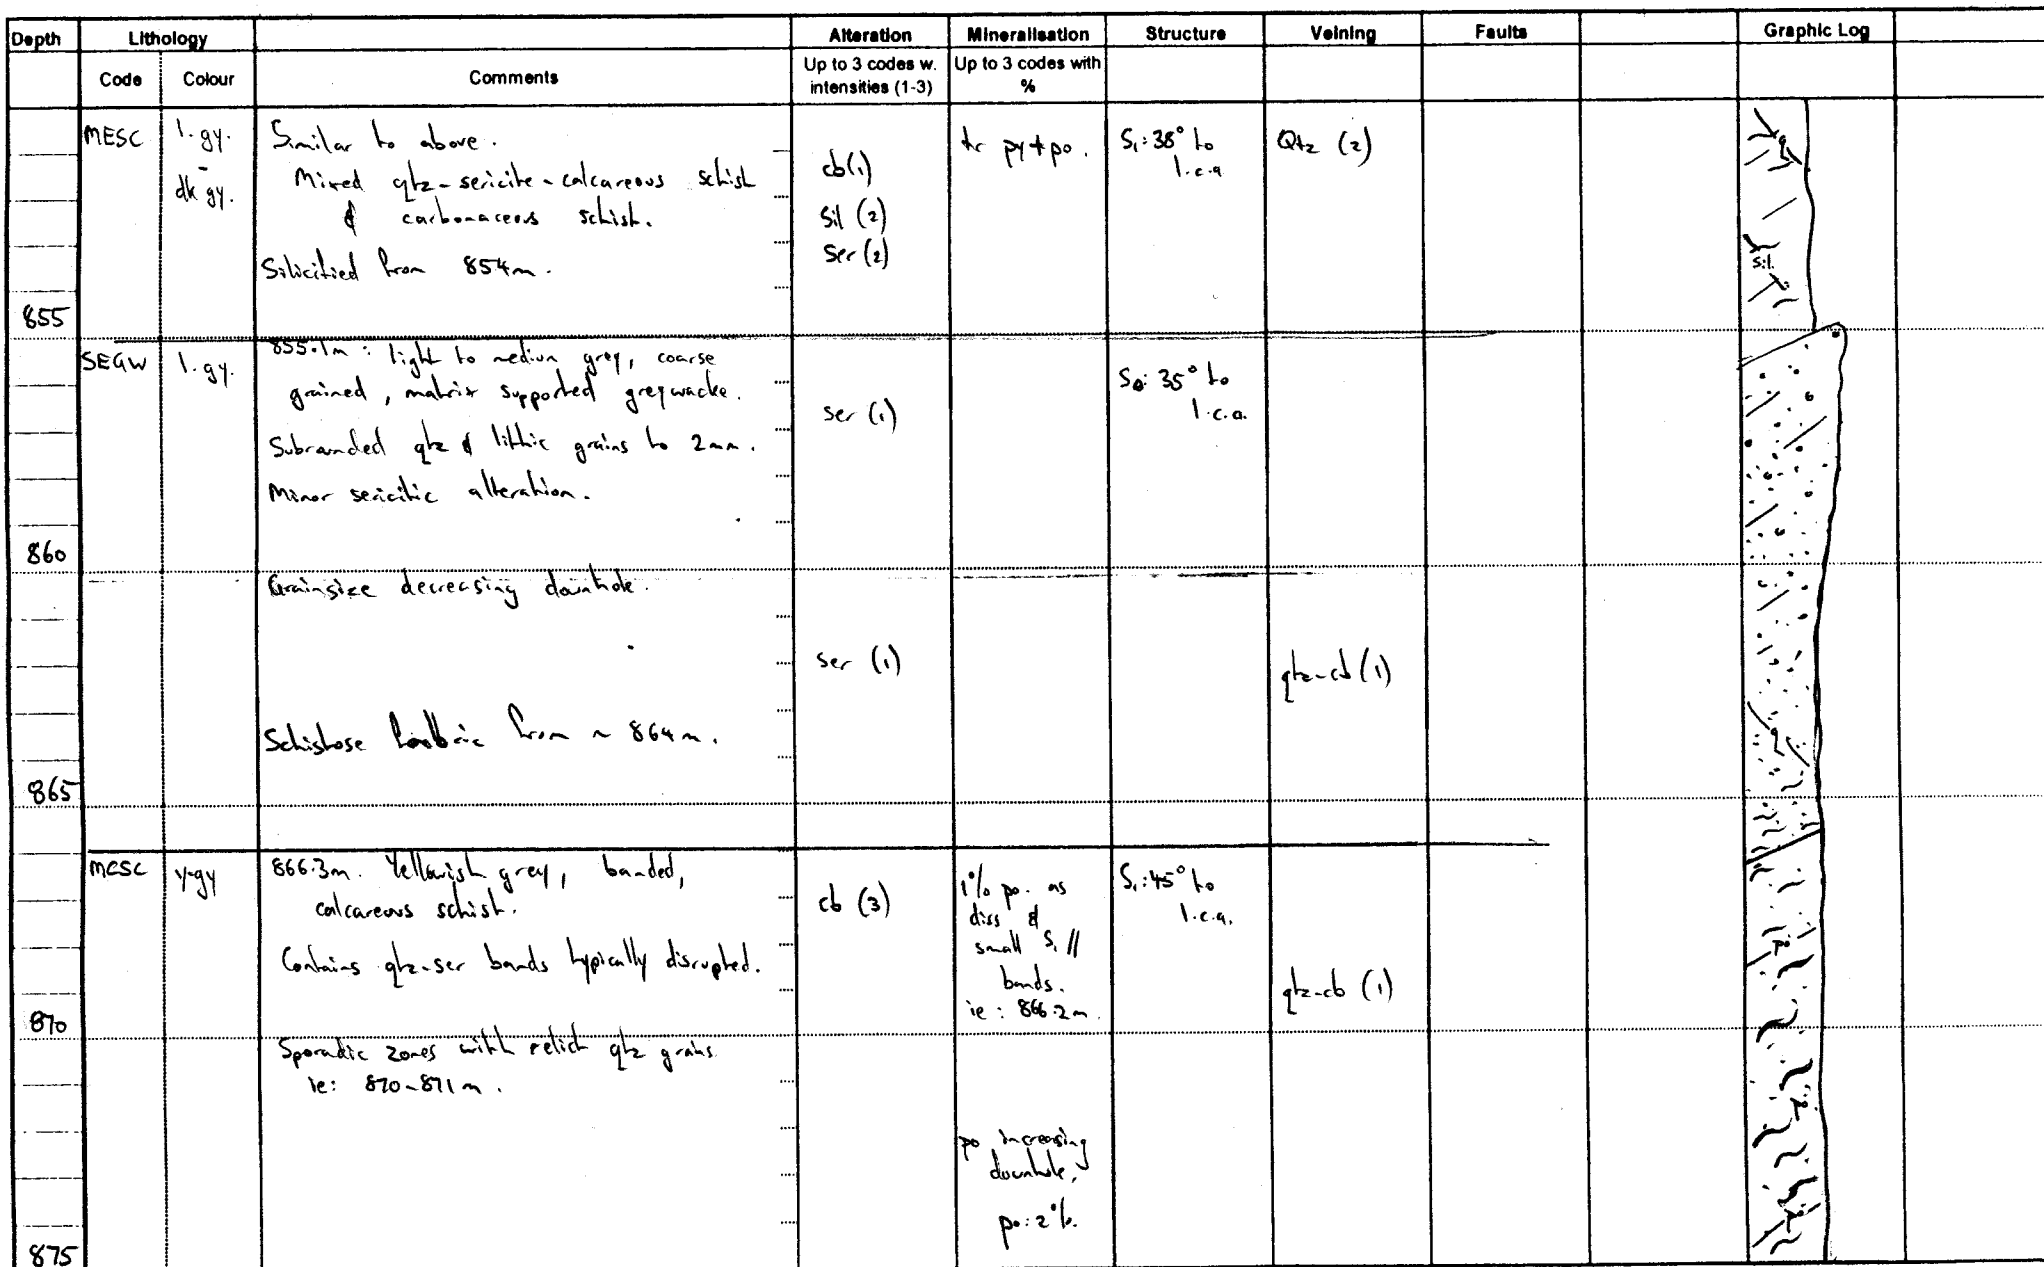 Depth Lithology Alteration Mineralisation Structure Veining Faults Graphic Log
Code Colour Comments Up to 3 codes w. intensities (1-3) Up to 3 codes with %
MESC l.gy. - dk gy.
Similar to above.
Mixed qtz-sericite-calcareous schist
& carbonaceous schist.
Silicified from 854m.
cb(1)
Sil (2)
Ser (2)
tr py+po.
S₁:38° to
l.c.a
Qtz (2)
Sil.
855
SEGW l.gy.
855.1m: light to medium grey, coarse
grained, matrix supported greywacke.
Subrounded qtz & lithic grains to 2mm.
Minor sericitic alteration.
ser (1)
S₀: 35° to
l.c.a.
860
Grainsize decreasing downhole.
Schistose from ~ 864m.
ser (1)
qtz-cb (1)
865
MCSC y-gy
866.3m. Yellowish grey, banded,
calcareous schist.
Contains qtz-ser bands typically disrupted.
cb (3)
1% po. as
diss &
small S₁ //
bands.
ie: 866.2m.
S₁:45° to
l.c.a.
qtz-cb (1)
870
Sporadic zones with relict qtz grains
ie: 870-871m.
po increasing
downhole,
po: 2%.
875